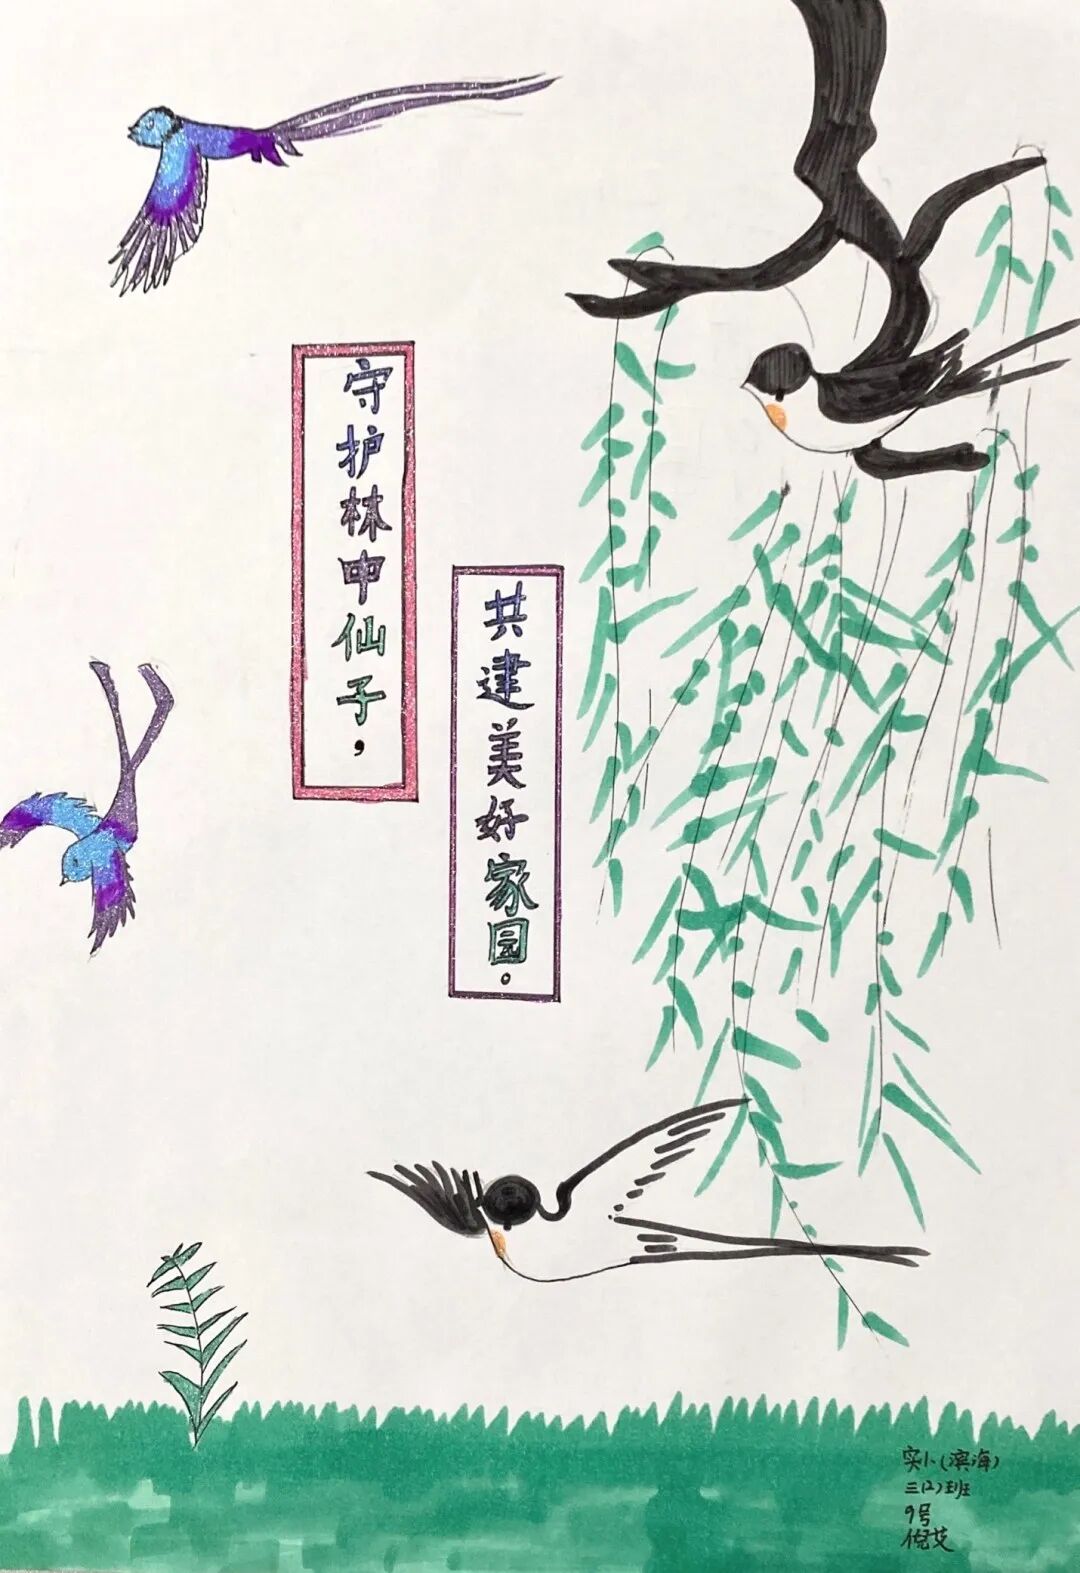 守护林中仙子，
共建美好家园。
实小(滨海)
三(2)班
9号
倪艾